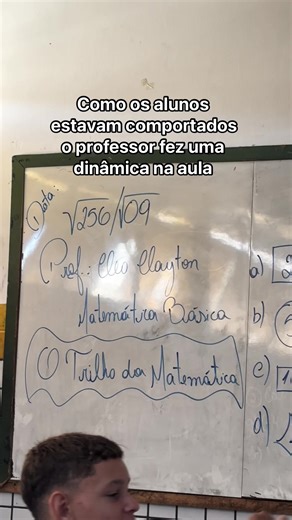 Como os alunos
estavam comportados
o professor fez uma
dinâmica na aula
Data:
√256/√09
Prof.: Clio Clayton
Matemática Básica
O Trilho da Matemática
a)
b)
c)
d)